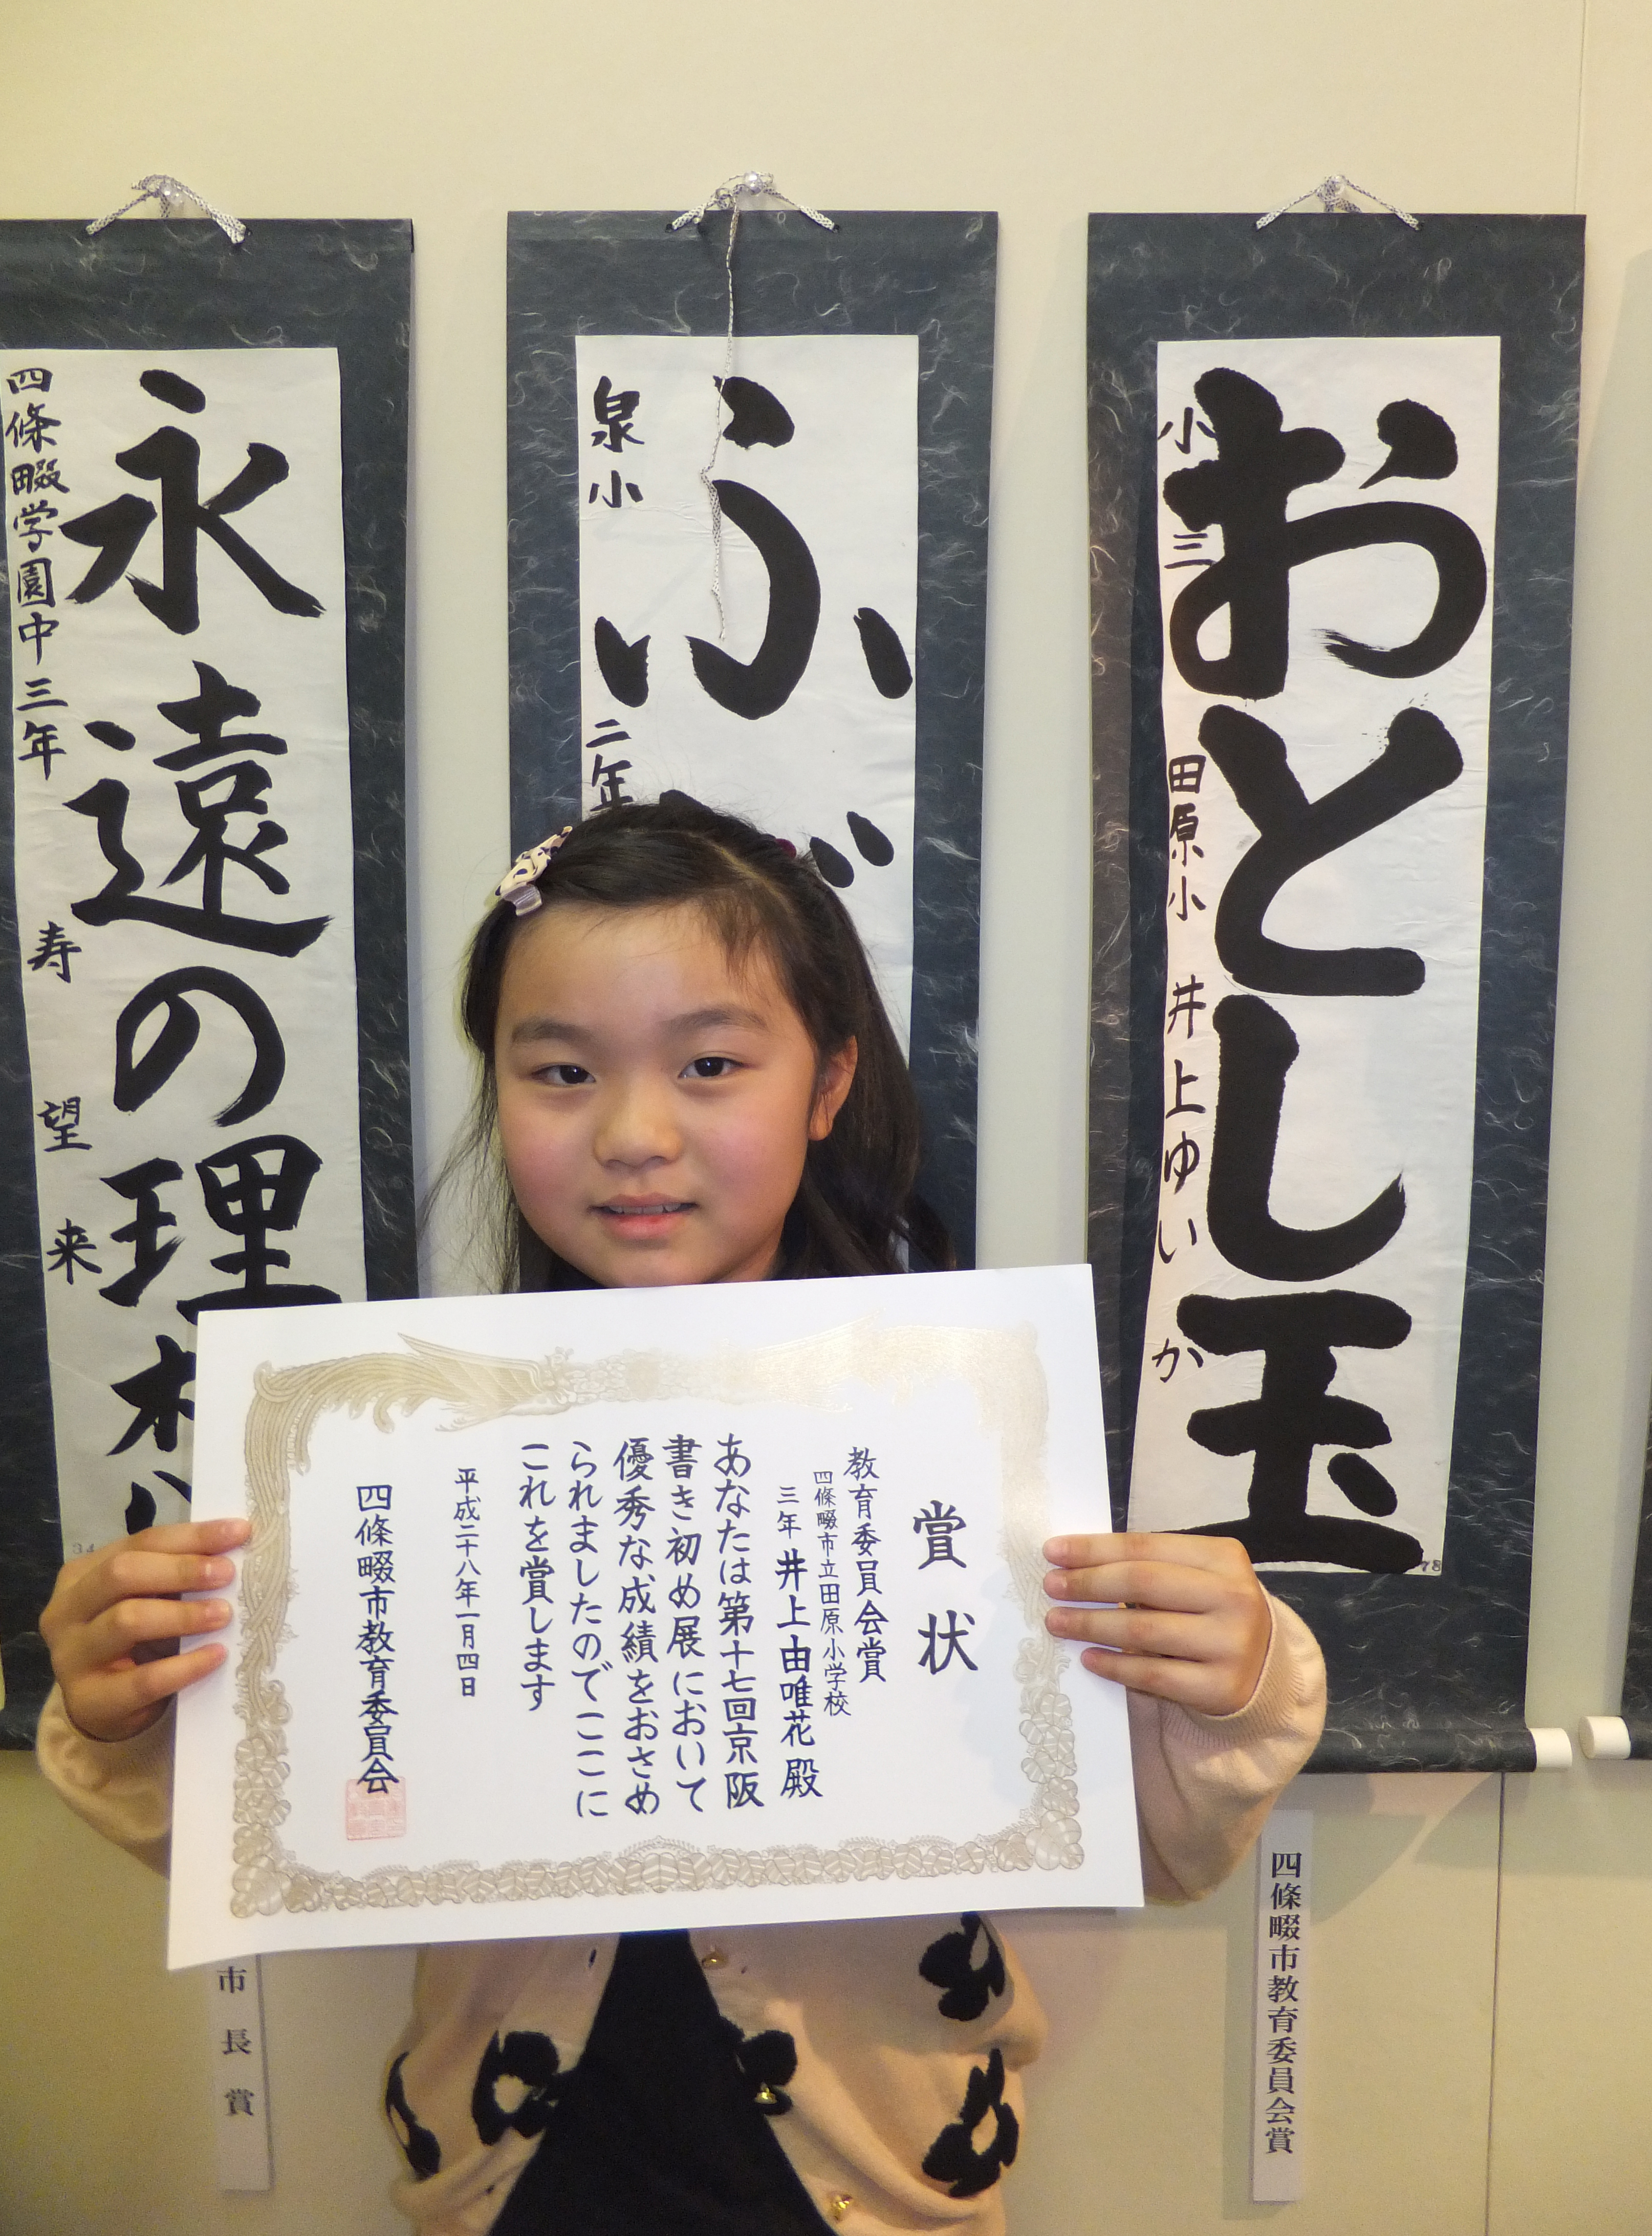 おとし玉
小三
田原小 井上ゆいか
78
ふ
泉小
二年
永遠の理
四條畷学園中三年
寿望来
34
賞状
教育委員会賞
四條畷市立田原小学校
三年 井上由唯花 殿
あなたは第十七回京阪
書き初め展において
優秀な成績をおさめ
られましたのでここに
これを賞します
平成二十八年一月四日
四條畷市教育委員会
四條畷市教育委員会賞
市長賞